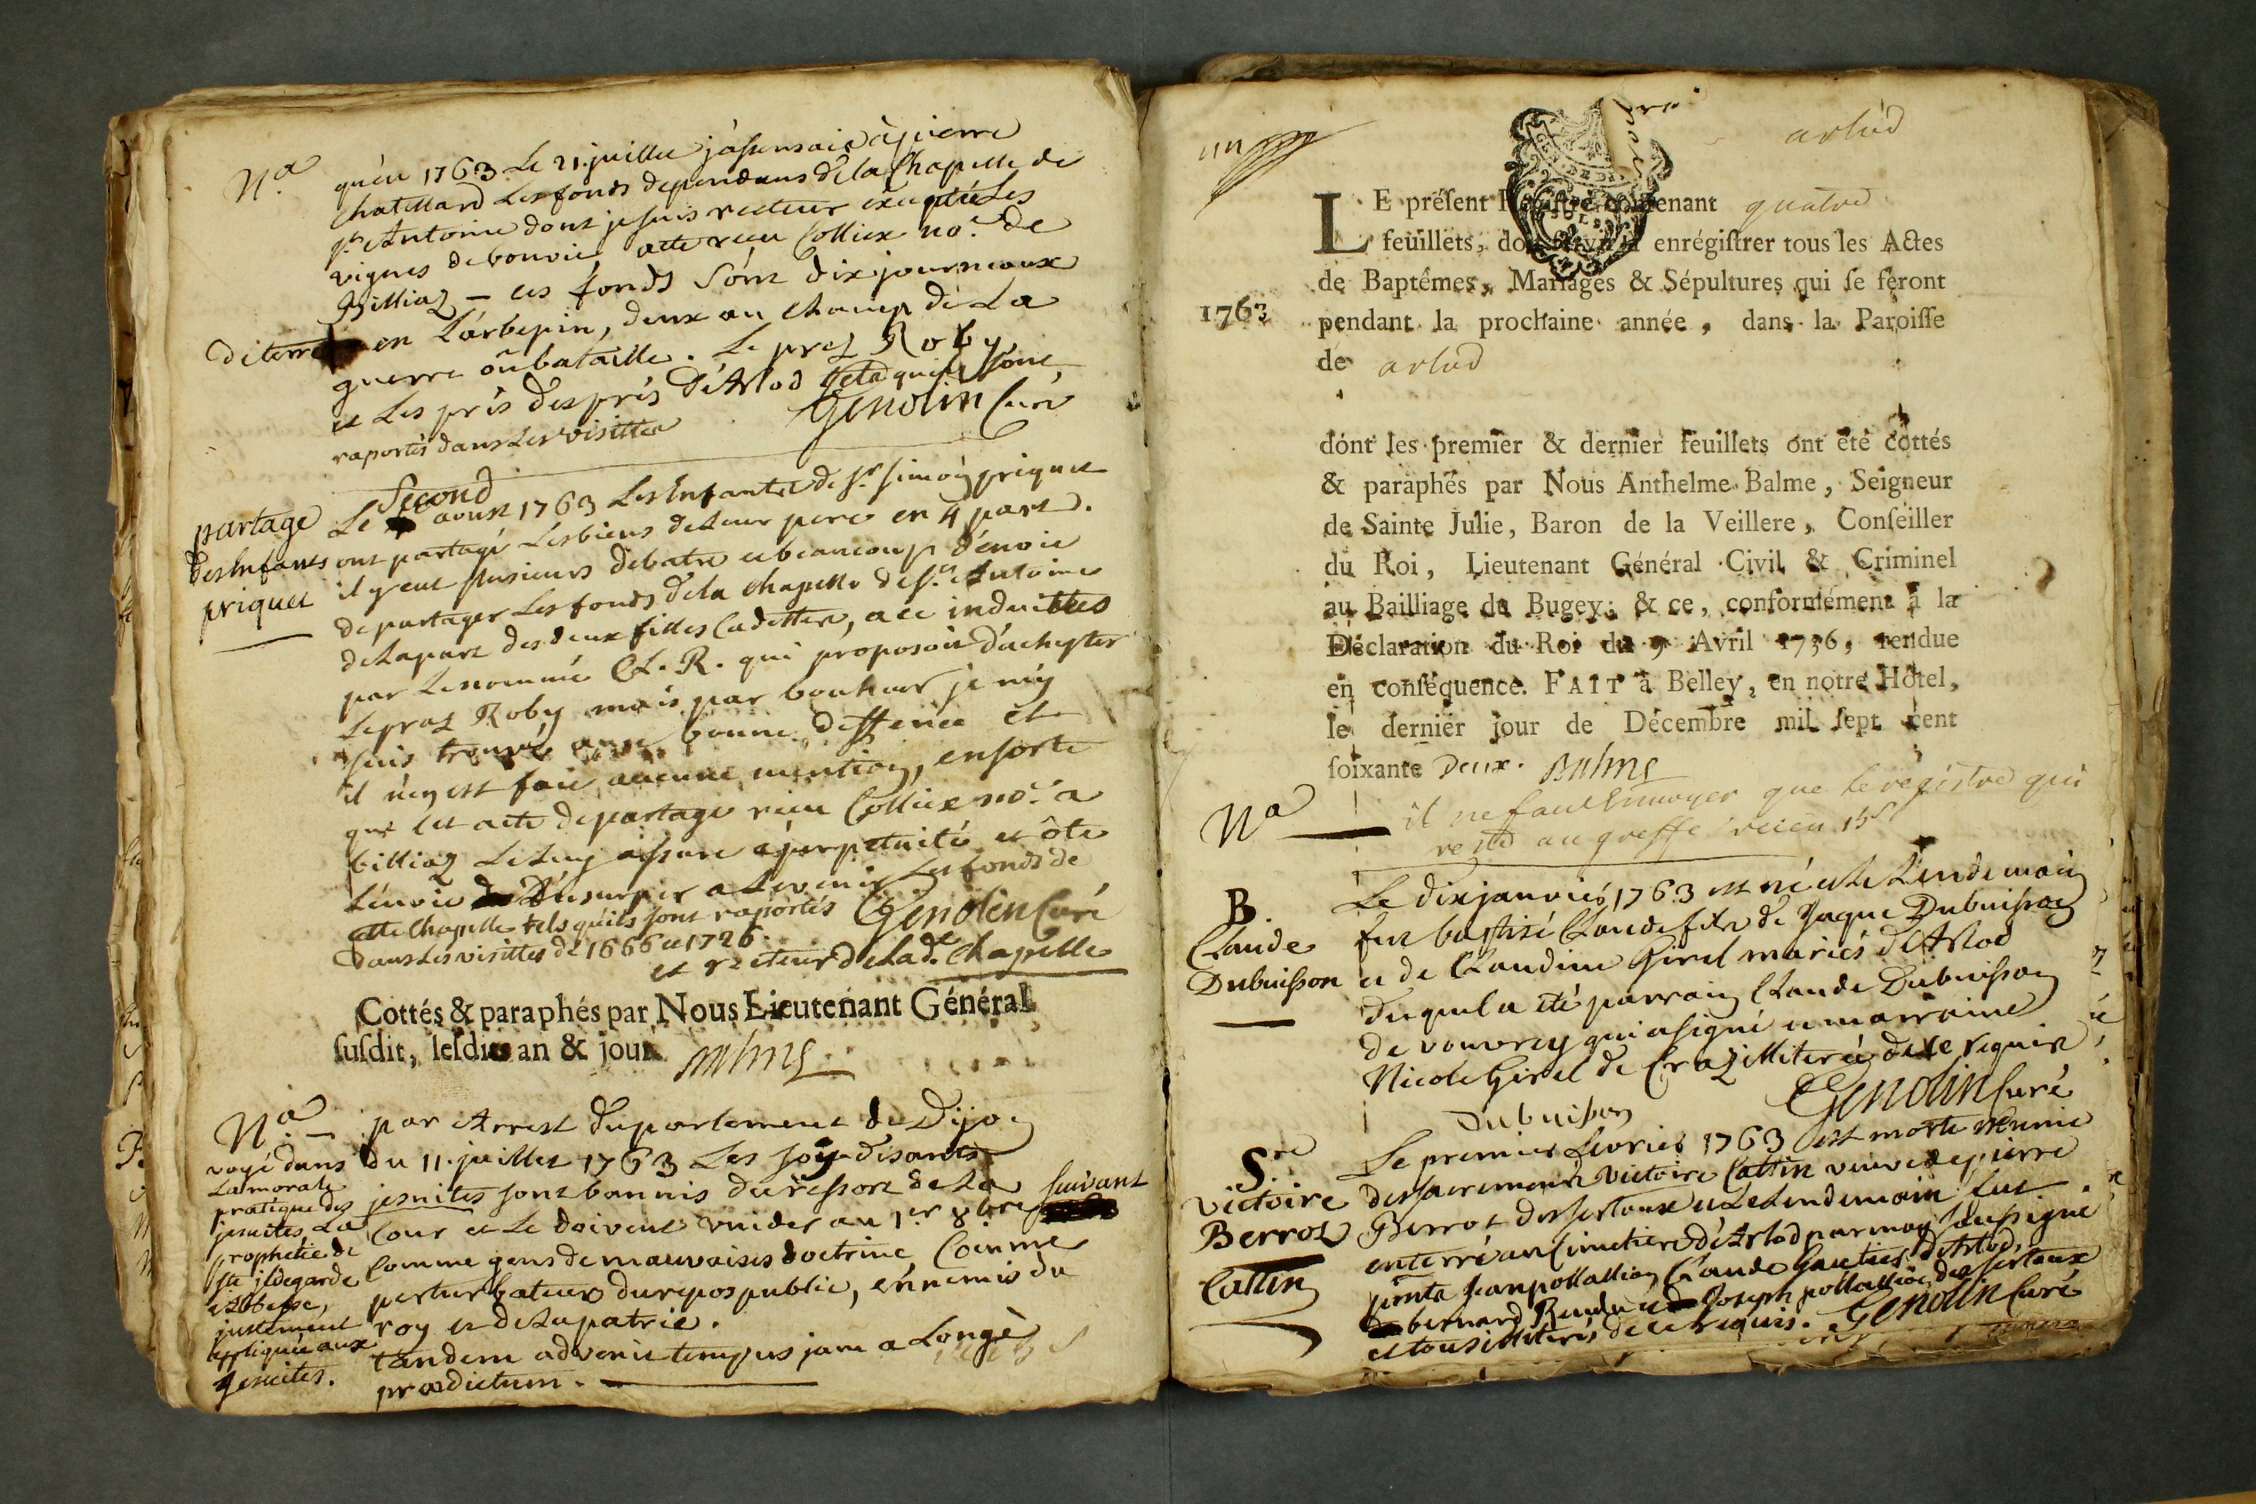 Na. qu'en 1763 Le 21. juillet j'assensais à pierre
Chatillard Les fonds dependans de la Chapelle de
st. Antoine dont je suis recteur excepté Les
vignes de bonvoir acte receu Colliex no.re de
Billiaz – ces fonds sont dix journeaux
de terre en Larbepin, deux au Champ de La
guerre ou bataille. Le praz Roby
et Les prés des prés d'Arlod tels qu'ils sont
raportés dans Les visittes Genolin Curé
Second
partage Le aoust 1763 Les Enfants de sr. simon priquet
des Enfants ont partagé Les biens de Leur pere en 4 parts.
priquet il y eut plusieurs debats et beaucoup d'envie
de partager Les fonds de la chapelle de st. Antoine
de La part des deux filles Cadettes, a ce induittes
par Le nommé Cl. R. qui proposoit d'achepter
Le praz Roby mais par bonheur je m'y
suis trouvé avec bonne deffence et
il n'en est fait aucune mention, ensorte
que cet acte de partage receu Colliex no.re a
billiaz Le Luy assure a perpetuité et ôte
L'envie d'usurper a L'avenir Les fonds de
cette Chapelle tels qu'ils sont raportés
dans Les visittes de 1666 et 1726. Genolin Curé
et recteur de Lad.e Chapelle
Cottés & paraphés par Nous Lieutenant Général
susdit, lesdits an & jour. Balme
Na. – par Arrest du parlement de Dijon
voyé dans du 11. juillet 1763 Les soy-disants
La morale
pratique des jesuites sont bannis du ressort de La suivant
jesuites, La Cour et Le doivent vuider au 1er 8bre
prophetie de
ste ildegarde Comme gens de mauvaises doctrine, Comme
Abbesse, perturbateurs du repos public, ennemis du
justement roy et de La patrie.
appliquée aux tandem advenit tempus jam a Longè
jesuites. prædictum.
un
arlod
LE présent Registre contenant quatre
feuillets, doit servir à enrégistrer tous les Actes
de Baptêmes, Mariages & Sépultures qui se feront
1763 pendant la prochaine année, dans la Paroisse
de arlod
dont les premier & dernier feuillets ont été cottés
& paraphés par Nous Anthelme Balme, Seigneur
de Sainte Julie, Baron de la Veillere, Conseiller
du Roi, Lieutenant Général Civil & Criminel
au Bailliage du Bugey; & ce, conformément à la
Déclaration du Roi du 9 Avril 1736, rendue
en conséquence. FAIT à Belley, en notre Hôtel,
le dernier jour de Décembre mil sept cent
soixante Deux. Balme
Na il ne faut Envoyer que le registre qui
reste au greffe receu 15s
B. Le dix janvier 1763 est né et Le Lendemain
Claude fut baptisé Claude fils de Jaque Dubuisson
Dubuisson et de Claudine Girel mariés d'Arlod
duquel a été parrain Claude Dubuisson
de vouvrey qui a signé et marraine
Nicole Girel de Craz illiterée de ce requise
Dubuisson Genolin Curé
S.re Le premier fevrier 1763 est morte munie
victoire des sacremens victoire Cattin veuve de pierre
Berrot Berrot des sertoux et Le Lendemain fut
Cattin enterré au Cimetiere d'Arlod par moy soussigné
pnts Jean pollallion Claude Gautier d'Arlod,
bernard Rendu et Joseph pollallion des sertoux
et tous illiterés de ce requis. Genolin Curé